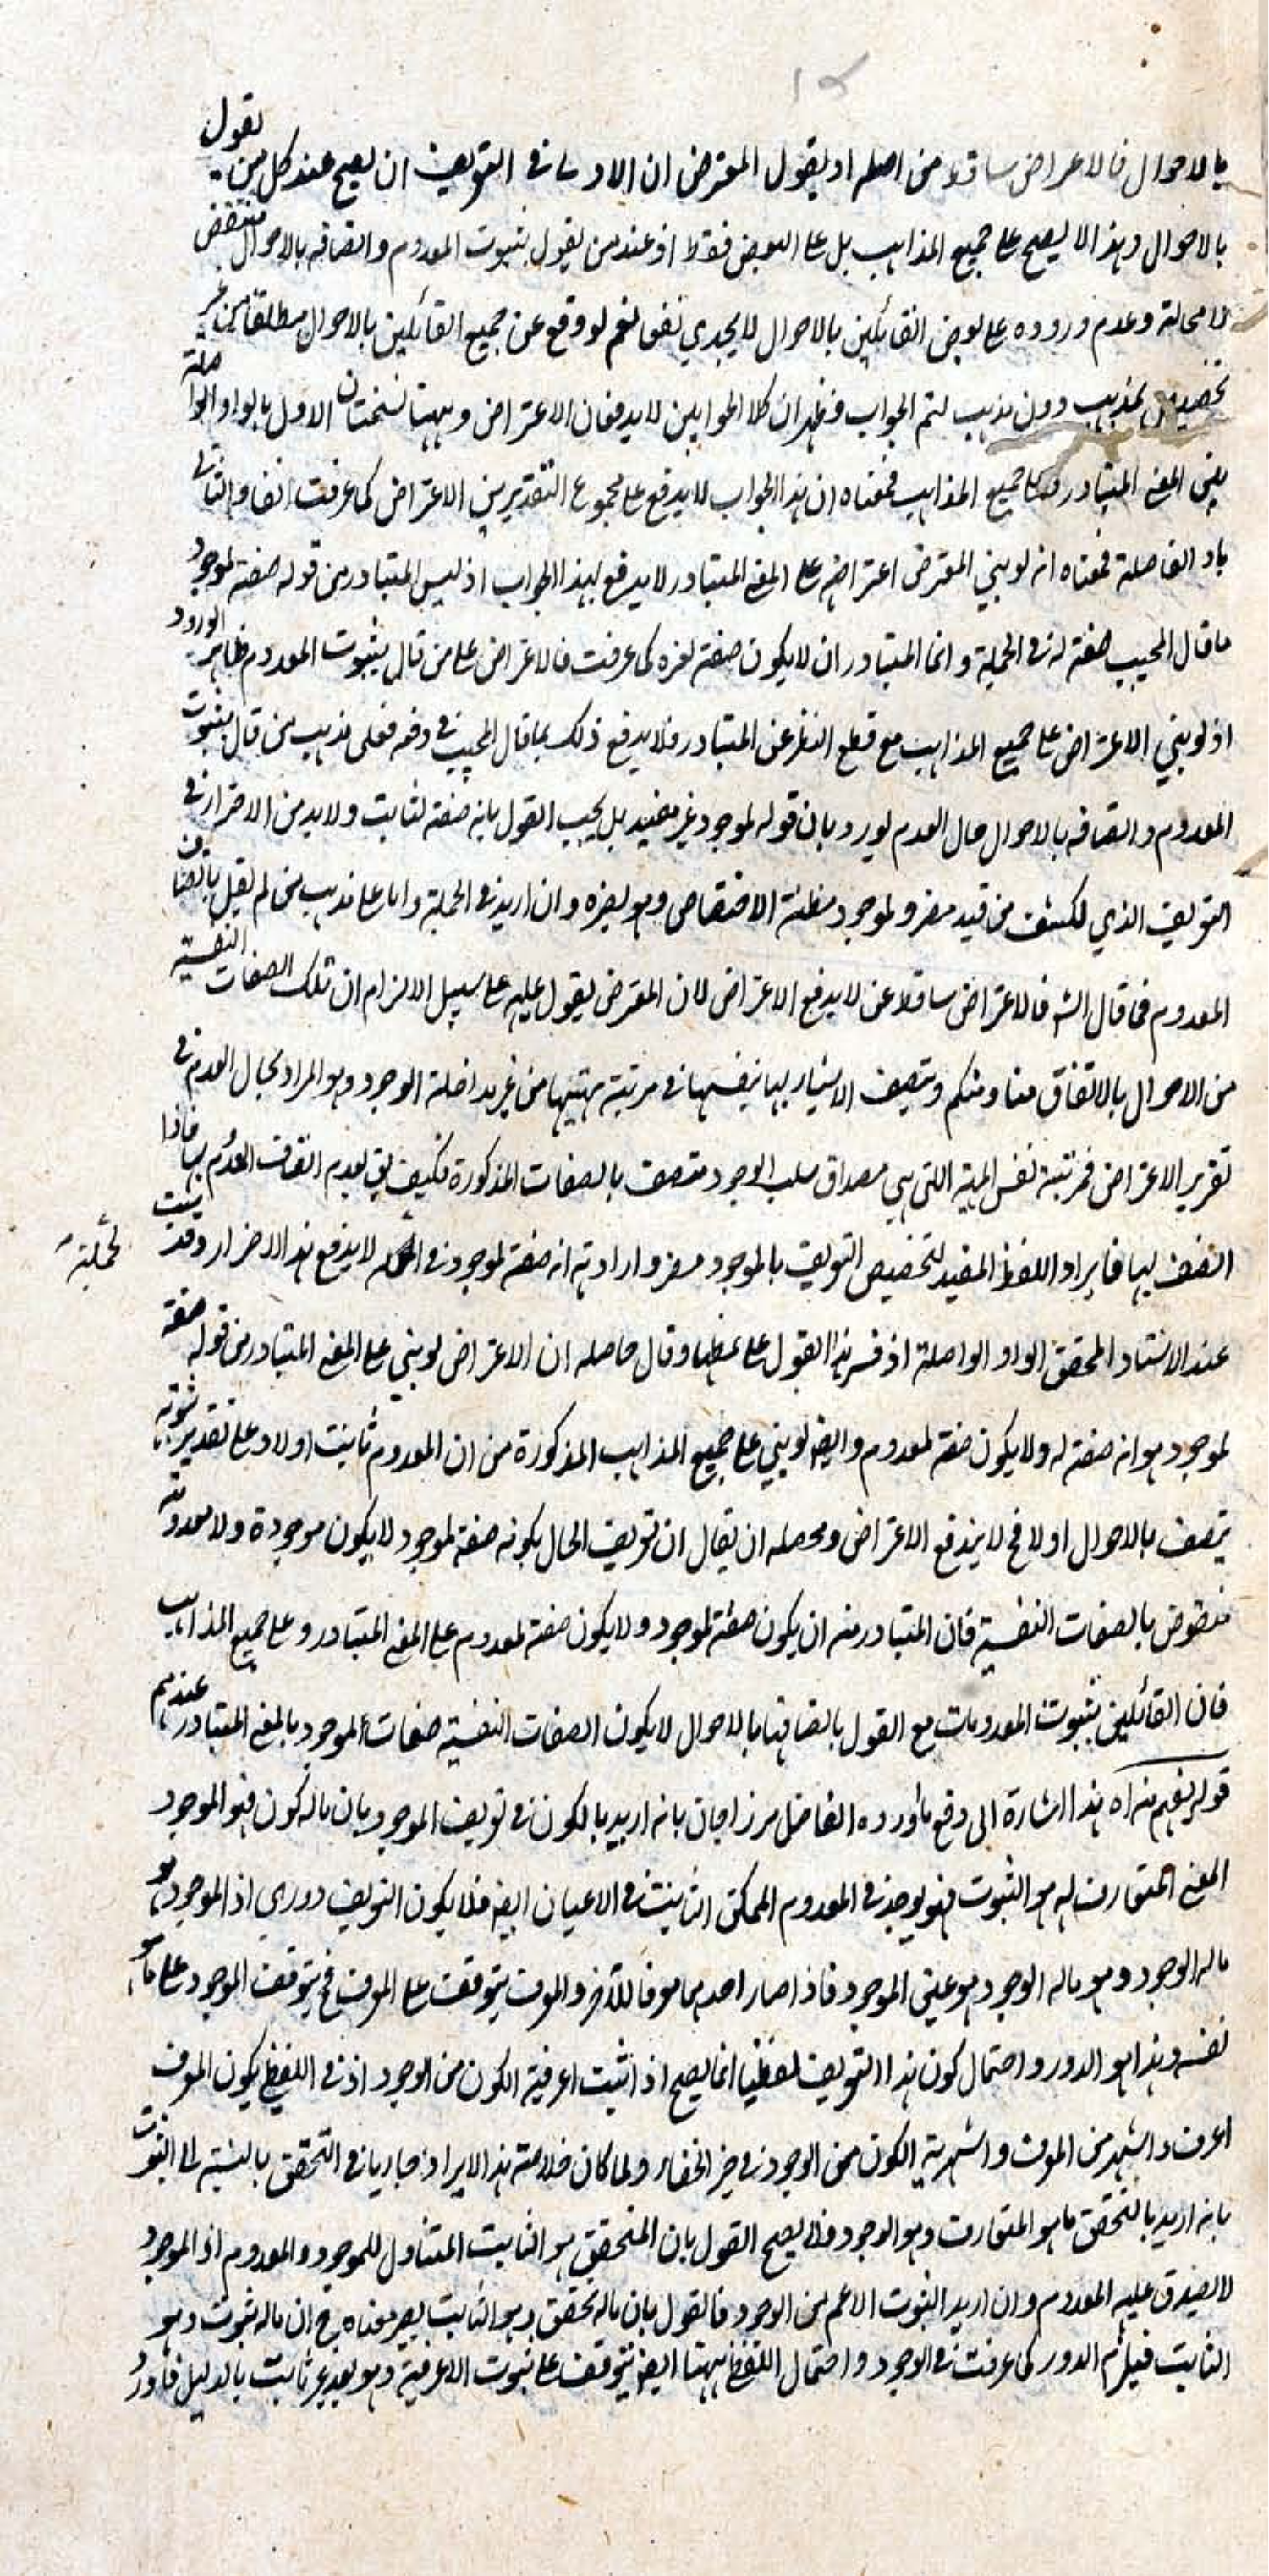 بالاحوال فالاعراض ساقط من اصله او يقول المعترض ان الاولى في التعريف ان يصح عند كل من يقول
بالاحوال وهذا لا يصح على جميع المذاهب بل على البعض فقط اذ عند من يقول بثبوت المعدوم واتصافه بالاحوال منتقض
لا محالة وعدم وروده على بعض القائلين بالاحوال لا يجدي نفعا نعم لو وقع عن جميع القائلين بالاحوال مطلقا من غير
تخصيص بمذهب دون مذهب لتم الجواب فظهر ان كلا الجوابين لا يدفعان الاعتراض وههنا نسختان الاول بالواو الواصلة
يعني المعنى المتبادر وعلى جميع المذاهب فمعناه ان هذا الجواب لا يدفع على مجموع التقديرين الاعتراض كما عرفت انفا والثاني
باو الفاصلة فمعناه انه لو بني المعترض اعتراضه على المعنى المتبادر لا يدفع بهذا الجواب اذ ليس المتبادر من قوله صفة لموجود
ما قال المجيب صفة له في الجملة وانما المتبادر ان لا يكون صفة لغيره كما عرفت فالاعتراض على من قال بثبوت المعدوم ظاهر الورود
اذ لو بني الاعتراض على جميع المذاهب مع قطع النظر عن المتبادر فلا يدفع ذلك بما قال المجيب في دفعه فعلى مذهب من قال بثبوت
المعدوم واتصافه بالاحوال حال العدم يورد بان قوله لموجود غير مفيد بل يجب القول بانه صفة لثابت ولا بد من الاحتراز في
التعريف الذي للكشف من قيد مضر ولموجود مظنة الاختصاص وهو يضره وان اريد في الجملة واما على مذهب من لم يقل باتصاف
المعدوم فما قال الشه فالاعتراض ساقط عن لا يدفع الاعتراض لان المعترض يقول عليه على سبيل الالزام ان تلك الصفات النفسية
من الاحوال بالاتفاق منا ومنكم وتتصف الاشياء بها بنفسها في مرتبة مهيتها من غير مداخلة الوجود وهو المراد بحال العدم في
تقرير الاعتراض فمرتبة نفس المهية التي هي مصداق سلب الوجود متصف بالصفات المذكورة فكيف يق بعدم اتصاف العدم بها فاذا
اتصف بها فايراد اللفظ المفيد لتخصيص التعريف بالموجود مضر وارادته انه صفة لموجود في الجملة لا يدفع هذا الاضرار وقد بنيت
لجملة
عند الاستاد المحقق الواو الواصلة اذ فسر هذا القول على نمطها وقال حاصله ان الاعتراض لو بني على المعنى المتبادر من قوله صفة
لموجود هو انه صفة له ولا يكون صفة لمعدوم وايضا لو بني على جميع المذاهب المذكورة من ان المعدوم ثابت اولا وعلى تقدير ثبوته
يتصف بالاحوال اولا فح لا يندفع الاعتراض ومحصله ان يقال ان تعريف الحال بكونه صفة لموجود لا يكون موجودة ولا معدومة
منقوض بالصفات النفسية فان المتبادر منه ان يكون صفة لموجود ولا يكون صفة لمعدوم على المعنى المتبادر وعلى جميع المذاهب
فان القائلين بثبوت المعدومات مع القول باتصافها بالاحوال لا يكون الصفات النفسية صفات لموجود بالمعنى المتبادر عندهم
قوله يفهم منه اه هذا اشارة الى دفع ما اورده الفاضل مرزا جان بانه اريد بالكون في تعريف الموجود بان ماله كون فهو الموجود
المعنى المتعارف له هو الثبوت فهو يوجد في المعدوم الممكن الثابت في الاعيان ايضا فلا يكون التعريف دوري اذ الموجود هو
ماله الوجود وهو ماله الوجود هو عين الموجود فاذا صار احدهما معرفا للآخر والمعرف يتوقف على المعرف فح يتوقف الموجود على ما هو
نفسه وهذا هو الدور واحتمال كون هذا التعريف لفظيا انما يصح اذا ثبت اعرفية الكون من الوجود اذ في اللفظي يكون المعرف
اعرف واشهر من المعرف واشهرية الكون من الوجود في حيز الخفاء ولما كان خلاصة هذا الايراد جاريا في التحقق بالنسبة الى الثبوت
بانه اريد بالتحقق ما هو المتعارف وهو الوجود فلا يصح القول بان المتحقق هو الثابت المتناول للموجود والمعدوم اذ الموجود
لا يصدق عليه المعدوم وان اريد الثبوت الاعم من الوجود فالقول بان ماله تحقق وهو الثابت يصير معناه ح ان ماله ثبوت وهو
الثابت فيلزم الدور كما عرفت في الوجود واحتمال اللفظي ههنا ايضا يتوقف على ثبوت الاعرفية وهو بعد غير ثابت بالدليل فاورد